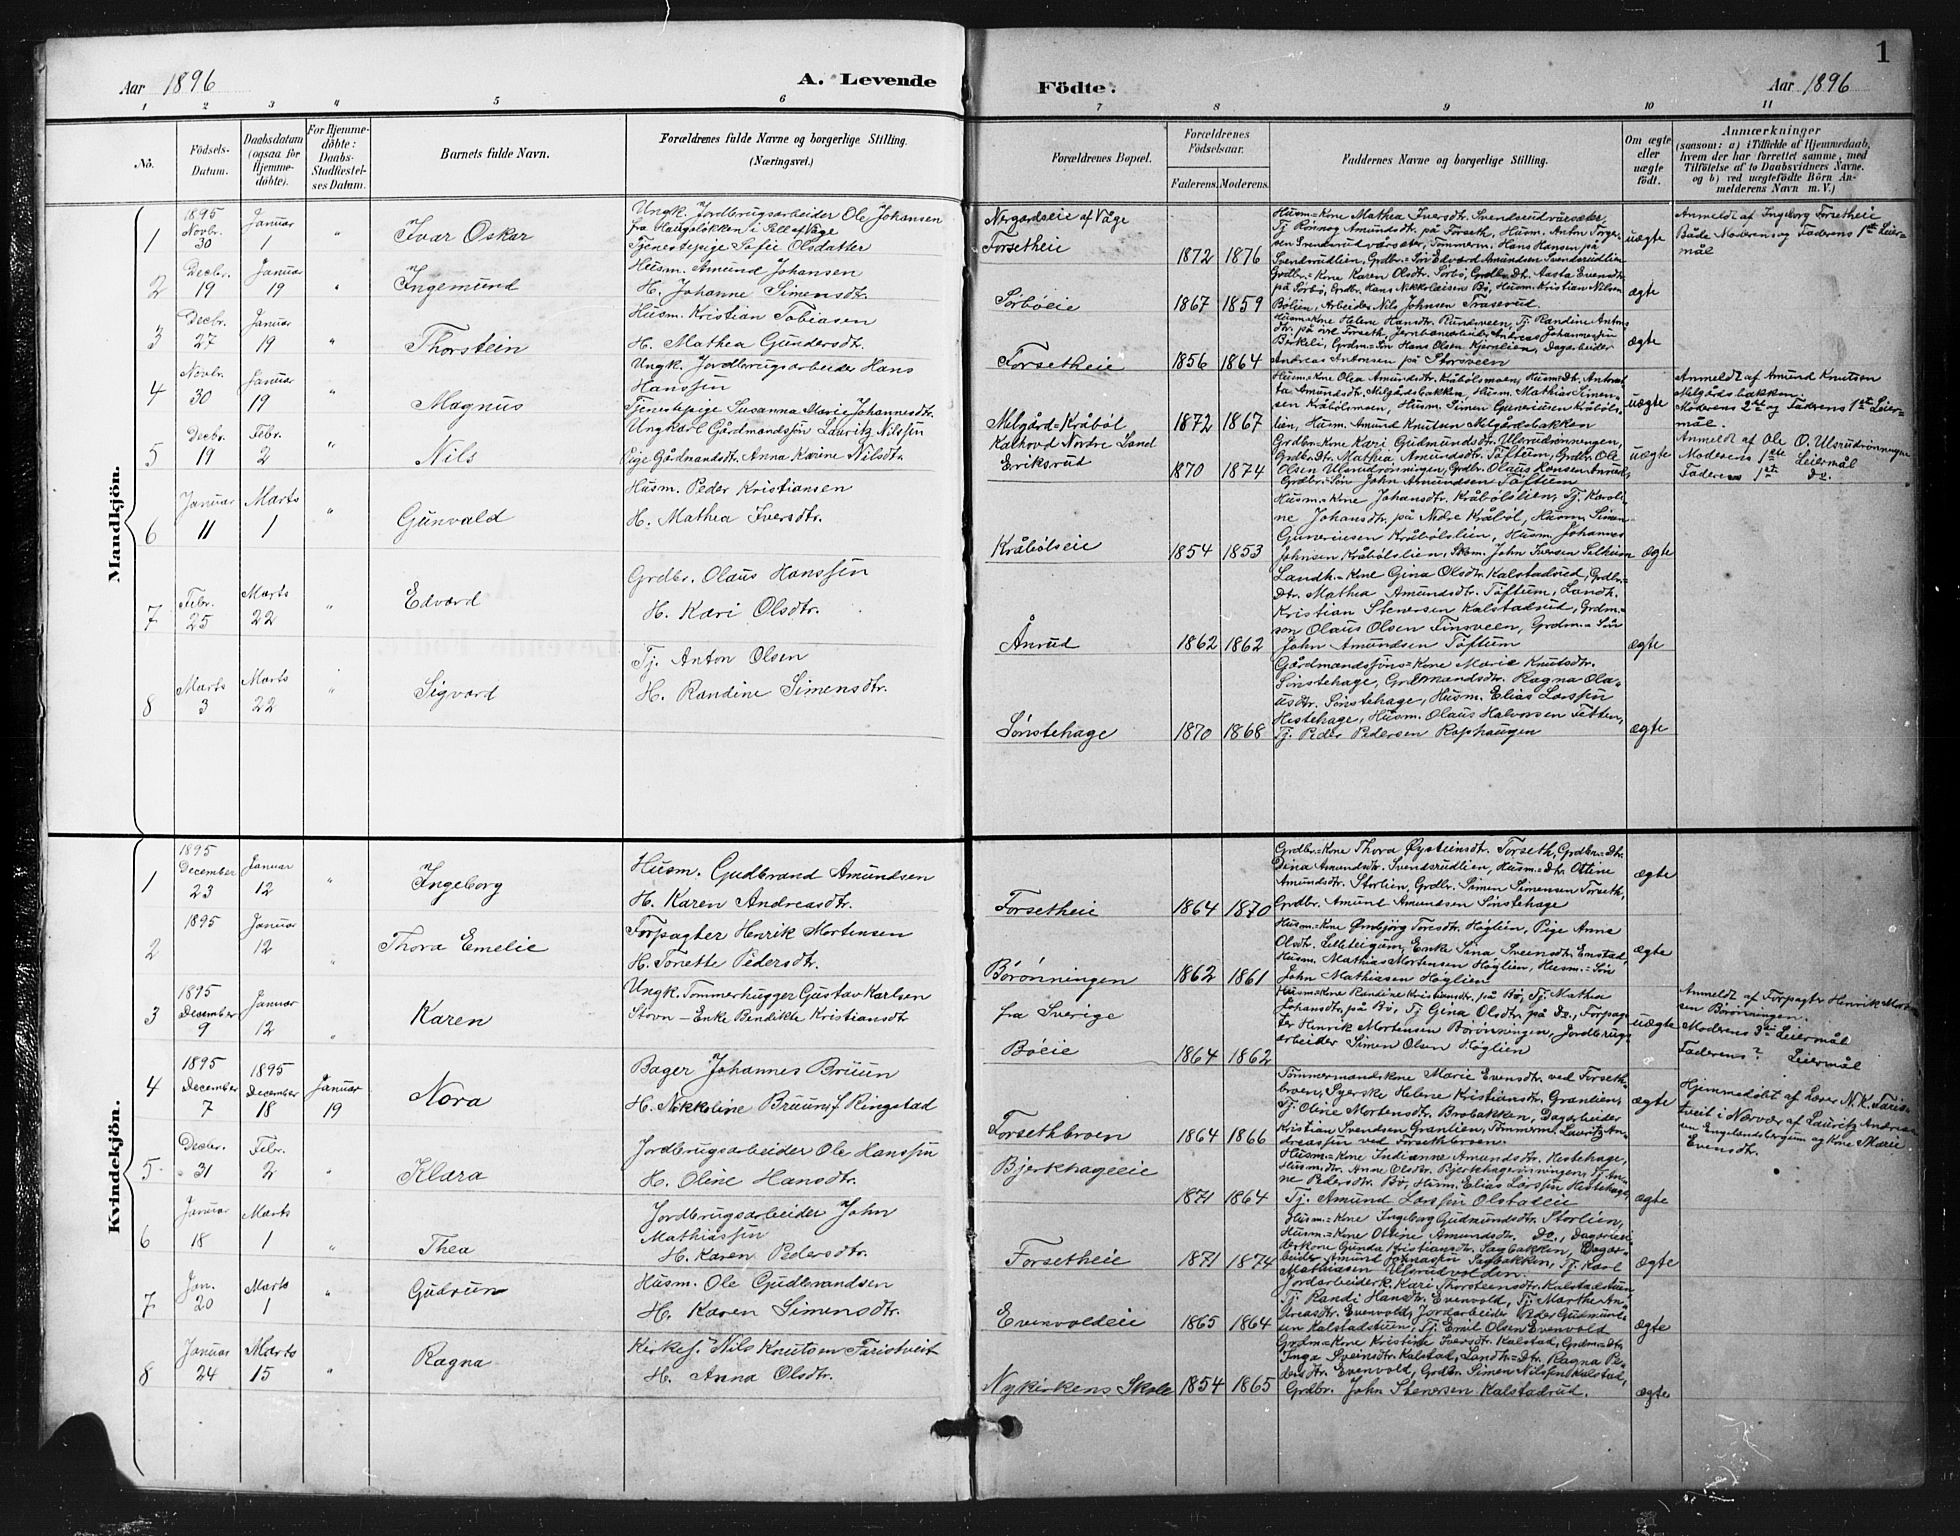 1
Aar 1896
A. Levende
Födte.
Aar 1896
1 2 3 4 5 6 7 8 9 10 11
No.
Födsels-
Datum.
Daabsdatum
(ogsaa for
Hjemme-
döbte).
For Hjemme-
döbte:
Daabs-
Stadfæstel-
ses Datum.
Barnets fulde Navn.
Forældrenes fulde Navne og borgerlige Stilling.
(Næringsvei.)
Forældrenes Bopæl.
Forældrenes
Födselsaar.
Faderens. Moderens.
Faddernes Navne og borgerlige Stilling.
Om ægte
eller
uægte
födt.
Anmærkninger
(saasom: a) i Tilfælde af Hjemmedaab,
hvem der har forrettet samme, med
Tilföielse af to Daabsvidners Navne.
og b) ved uægtefödte Börn An-
melderens Navn m. V.)
Mandkjön.
1
1895
Novbr.
30
Januar
1
"
Ivar Oskar
Ungk. Jordbrugsarbeider Ole Johansen
fra Haugsløkken i Sell af Våge
Tjenestepige Sofie Olsdatter
Nergardseie af Våge
Forsetheie
1872 1876
Husm=Kone Mathea Iversdtr. Svendsrudværsæter,
Tj. Rønnog Amundsdtr. på Forseth, Husm. Anton Torger-
sen Svendsrudværsæter, Tømmerm. Hans Hansen på
Svendsrudlien, Grdbr.=Søn Edvard Amundsen Svendsrudlien
uægte
Anmeldt af Ingeborg Forsetheie
Både Moderens og Faderens 1ste Leier-
mål
2
Decbr.
19
Januar
19
"
Ingemund
Husm. Amund Johansen
H. Johanne Simensdtr.
Sørbøeie
1867 1859
Grdbr.=Kone Karen Olsdtr. Sørbø, Grdbr.Dtr. Aasta Evensdtr.
på Sørbø, Grdbr. Hans Nikkolaisen Bø, Husm. Kristian Nilsen
Bølien, Arbeider Nils Johnsen Traserud
ægte
3
Decbr.
27
Januar
19
"
Thorstein
Husm. Kristian Tobiasen
H. Mathea Gundersdtr.
Forsetheie
1856 1864
Husm=Kone Helene Hansdtr. Rundsveen, Tj. Randine Antons
dtr. på øvre Forseth, Jernbanearbeider Andreas Johannessøn
Birkeli, Grdm=Søn Hans Olsen Kjernlien, Dagarbeider
Andreas Antonsen på Storsveen
ægte
4
Novbr.
30
Januar
19
"
Magnus
Ungk. Jordbrugsarbeider Hans
Hanssøn
Tjenestepige Susanna Marie Johannesdtr.
Melgård=Kråbøl
1872 1867
Husm=Kone Olea Amundsdtr. Kråbølsmoen, Husm:Dtr. Antonet-
ta Amundsdtr. Melgårdsbakken, Husm. Mathias Simen-
sen Kråbølsmoen, Husm. Simen Gunerius en Kråbøls-
lien, Husm. Amund Knutsen Melgårdsbakken
uægte
Anmeldt af Amund Knutsen
Melgårdsbakken
Moderens 2det og Faderens 1ste Leier-
mål.
5
Decbr.
19
Febr.
2
"
Nils
Ungkarl Gårdmandssøn Lauritz Nilssøn
Pige Gårdmandsdtr. Anna Karine Nilsdtr.
Kalhovd Nordre Land
Eriksrud
1870 1874
Grdbr.=Kone Kari Gudmundsdtr. Ulsrudrønningen,
Grdbr.Dtr. Mathia Amundsdtr. Tøftum, Grdbr. Ole
Olsen Ulsrudrønningen, Grdbr. Olaus Hansen Ånrud,
Grdbr=Søn John Amundsen Tøftum
uægte
Anmeldt af Ole O. Ulsrudrønningen
Moderens 1ste Leiermål
Faderens 1st Do.
6
Januar
11
Marts
1
"
Gunvald
Husm. Peder Kristiansen
H. Mathea Iversdtr.
Kråbølseie
1854 1853
Husm=Kone Johansdtr. Kråbølslien, Tj. Karoli-
ne Johansdtr. på Nedre Kråbøl, Husm. Simen
Guneriusen Kråbølslien, Husm. Johannes
Johnsen Kråbølslien, Skom. John Iversen
ægte
7
Febr.
25
Marts
22
"
Edvard
Grdbr. Olaus Hanssøn
H. Kari Olsdtr.
Ånrud
1862 1862
Landh.=Kone Gina Olsdtr. Kalstadrud, Grdbr.=
Dtr. Mathea Amundsdtr. Tøftum, Landh.
Kristian Stenersen Kalstadrud, Grdm=
søn Olaus Olsen Finsveen, Grdm=Søn
John Amundsen Tøftum
ægte
8
Marts
3
Marts
22
"
Sigvard
Tj. Anton Olsen
H. Randine Simensdtr.
Sønstehage
1870 1868
Gårdmandssøns=Kone Marie Knutsdtr.
Sønstehage, Grdmandsdtr. Ragna Ola-
usdtr. Sønstehage, Husm. Elias Larssøn
Hestehage, Husm. Olaus Halvorsen Fetten,
Tj. Peder Pedersen Rophaugen
ægte
Kvindekjön.
1
1895
December
23
Januar
12
"
Ingeborg
Husm. Gudbrand Amundsen
H. Karen Andreasdtr.
Forsetheie
1864 1870
Grdbr=Kone Thora Øysteinsdtr. Forseth, Grdbr=Dtr.
Dina Amundsdtr. Svendsrudlien, Husm=Dtr. Ottine
Amundsdtr. Storlien, Grdbr. Simen Simensen Forseth,
Grdbr. Amund Amundsen Sønstehage
ægte
2
1895
Januar
12
"
Thora Emelie
Forpagter Henrik Mortensen
H. Tonette Pedersdtr.
Børønningen
1862 1861
Husm=Kone Ømbjörg Toresdtr. Høglien, Pige Anne
Olsdtr. Lilleteigum, Enke Sina Sveinsdtr. Enstad,
Husm. Mathias Mortensen Høglien, Husm.=Søn
John Mathiasen Høglien
ægte
3
1895
December
9
Januar
12
"
Karen
Ungk. Tømmerhugger Gustav Karlsen
Støvn – Enke Bendikte Kristiansdtr
fra Sverige
Bøeie
1864 1862
Husm=Kone Randine Kristiansdtr. på Bø, Tj. Mathea
Johansdtr. på Bø, Tj. Gina Olsdtr. på Do., Forpag-
ter Henrik Mortensen Børønningen, Jordbrugs-
arbeider Simen Olsen Høglien
uægte
Anmeldt af Forpagtr. Henrik Mort-
sen Børønningen.
Moderens 3die Leiermål
Faderens? Leiermål
4
1895
December
7
1895
December
18
Januar
19
Nora
Bager Johannes Bruun
H. Nikkoline Bruun f. Ringstad
Forsethbroen
1864 1866
Tømmermandskone Marie Evensdtr. ved Forseth-
broen, Syerske Helene Kristiansdtr. Granlien,
Tj. Oline Mortensdtr. Brobakken, Dagarbeider
Kristian Svendsen Granlien, Tømmerm. Lauritz An-
dreassøn ved Forsethbroen.
ægte
Hjemmedøbt af Lærer N. K. Faris-
tveit i Nærvær af Lauritz Andreas-
sen Engelandsbergum og Kone Marie
Evensdtr.
5
Decbr.
31
Febr.
2
"
Klara
Jordbrugsarbeider Ole Hanssøn
H. Oline Hansdtr.
Bjerkhageeie
1871 1864
Husm.=Kone Indianne Amundsdtr. Hestehage,
Husm:dtr. Anne Olsdtr. Bjerkhagerønningen, Tj. An-
ne Pedersdtr. Bø, Husm. Elias Larssøn Hestehage,
Tj. Amund Larssøn Olstadeie
ægte
6
Januar
18
Marts
1
"
Thea
Jordbrugsarbeider John
Mathiassøn
H. Karen Pedersdtr.
Forsetheie
1871 1874
Husm.=Kone Ingeborg Gudmundsdtr. Storlien,
Husm.=Kone Ottine Amundsdtr. Do., Dagarbei-
derkone Gunda Kristiansdtr. Sagbakken, Dagar-
beider Amund Sagbakken, Tj. Karl
Mathiasen Ulsrudvolden
ægte
7
Jan.
20
Marts
1
"
Gudrun
Husm. Ole Gudbrandsen
H. Karen Simensdtr.
Evenvoldeie
1865 1864
Jordarbeiderk. Kari Thorsteensdtr. Kalstadtuen,
Tj. Randi Hansdtr. Evenvold, Tj. Marthe An-
dreasdtr. Evenvold, Jordarbeider Peder Gudmund-
sen Kalstadtuen, Tj. Emil Olsen Evenvold
ægte
8
Januar
24
Marts
15
"
Ragna
Kirkes. Nils Knutsen Faristveit
H. Anna Olsdtr.
Nykirkens Skole
1854 1865
Grdm=Kone Kristine Iversdtr. Kalstad, Grdm=Dtr.
Inga Sveinsdtr. Kalstad, Landh=Dtr. Ragna Pe-
dersdtr. Evenvold, Grdbr. Simen Nilssøn Kalstad,
Grdbr. John Stenersen Kalstadrud.
ægte